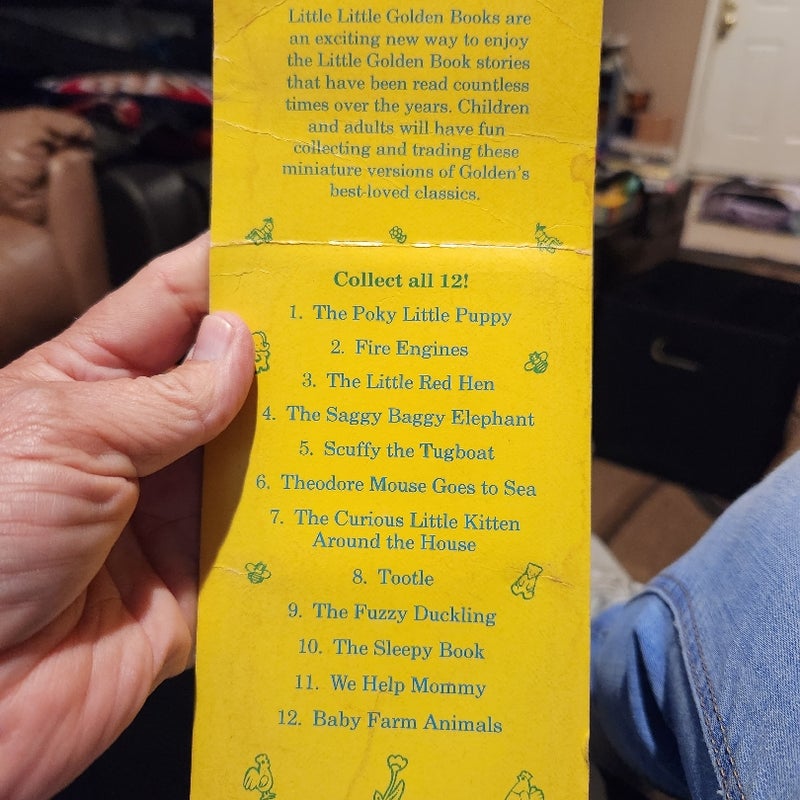 Little Little Golden Books are
an exciting new way to enjoy
the Little Golden Book stories
that have been read countless
times over the years. Children
and adults will have fun
collecting and trading these
miniature versions of Golden's
best-loved classics.
Collect all 12!
1. The Poky Little Puppy
2. Fire Engines
3. The Little Red Hen
4. The Saggy Baggy Elephant
5. Scuffy the Tugboat
6. Theodore Mouse Goes to Sea
7. The Curious Little Kitten
Around the House
8. Tootle
9. The Fuzzy Duckling
10. The Sleepy Book
11. We Help Mommy
12. Baby Farm Animals